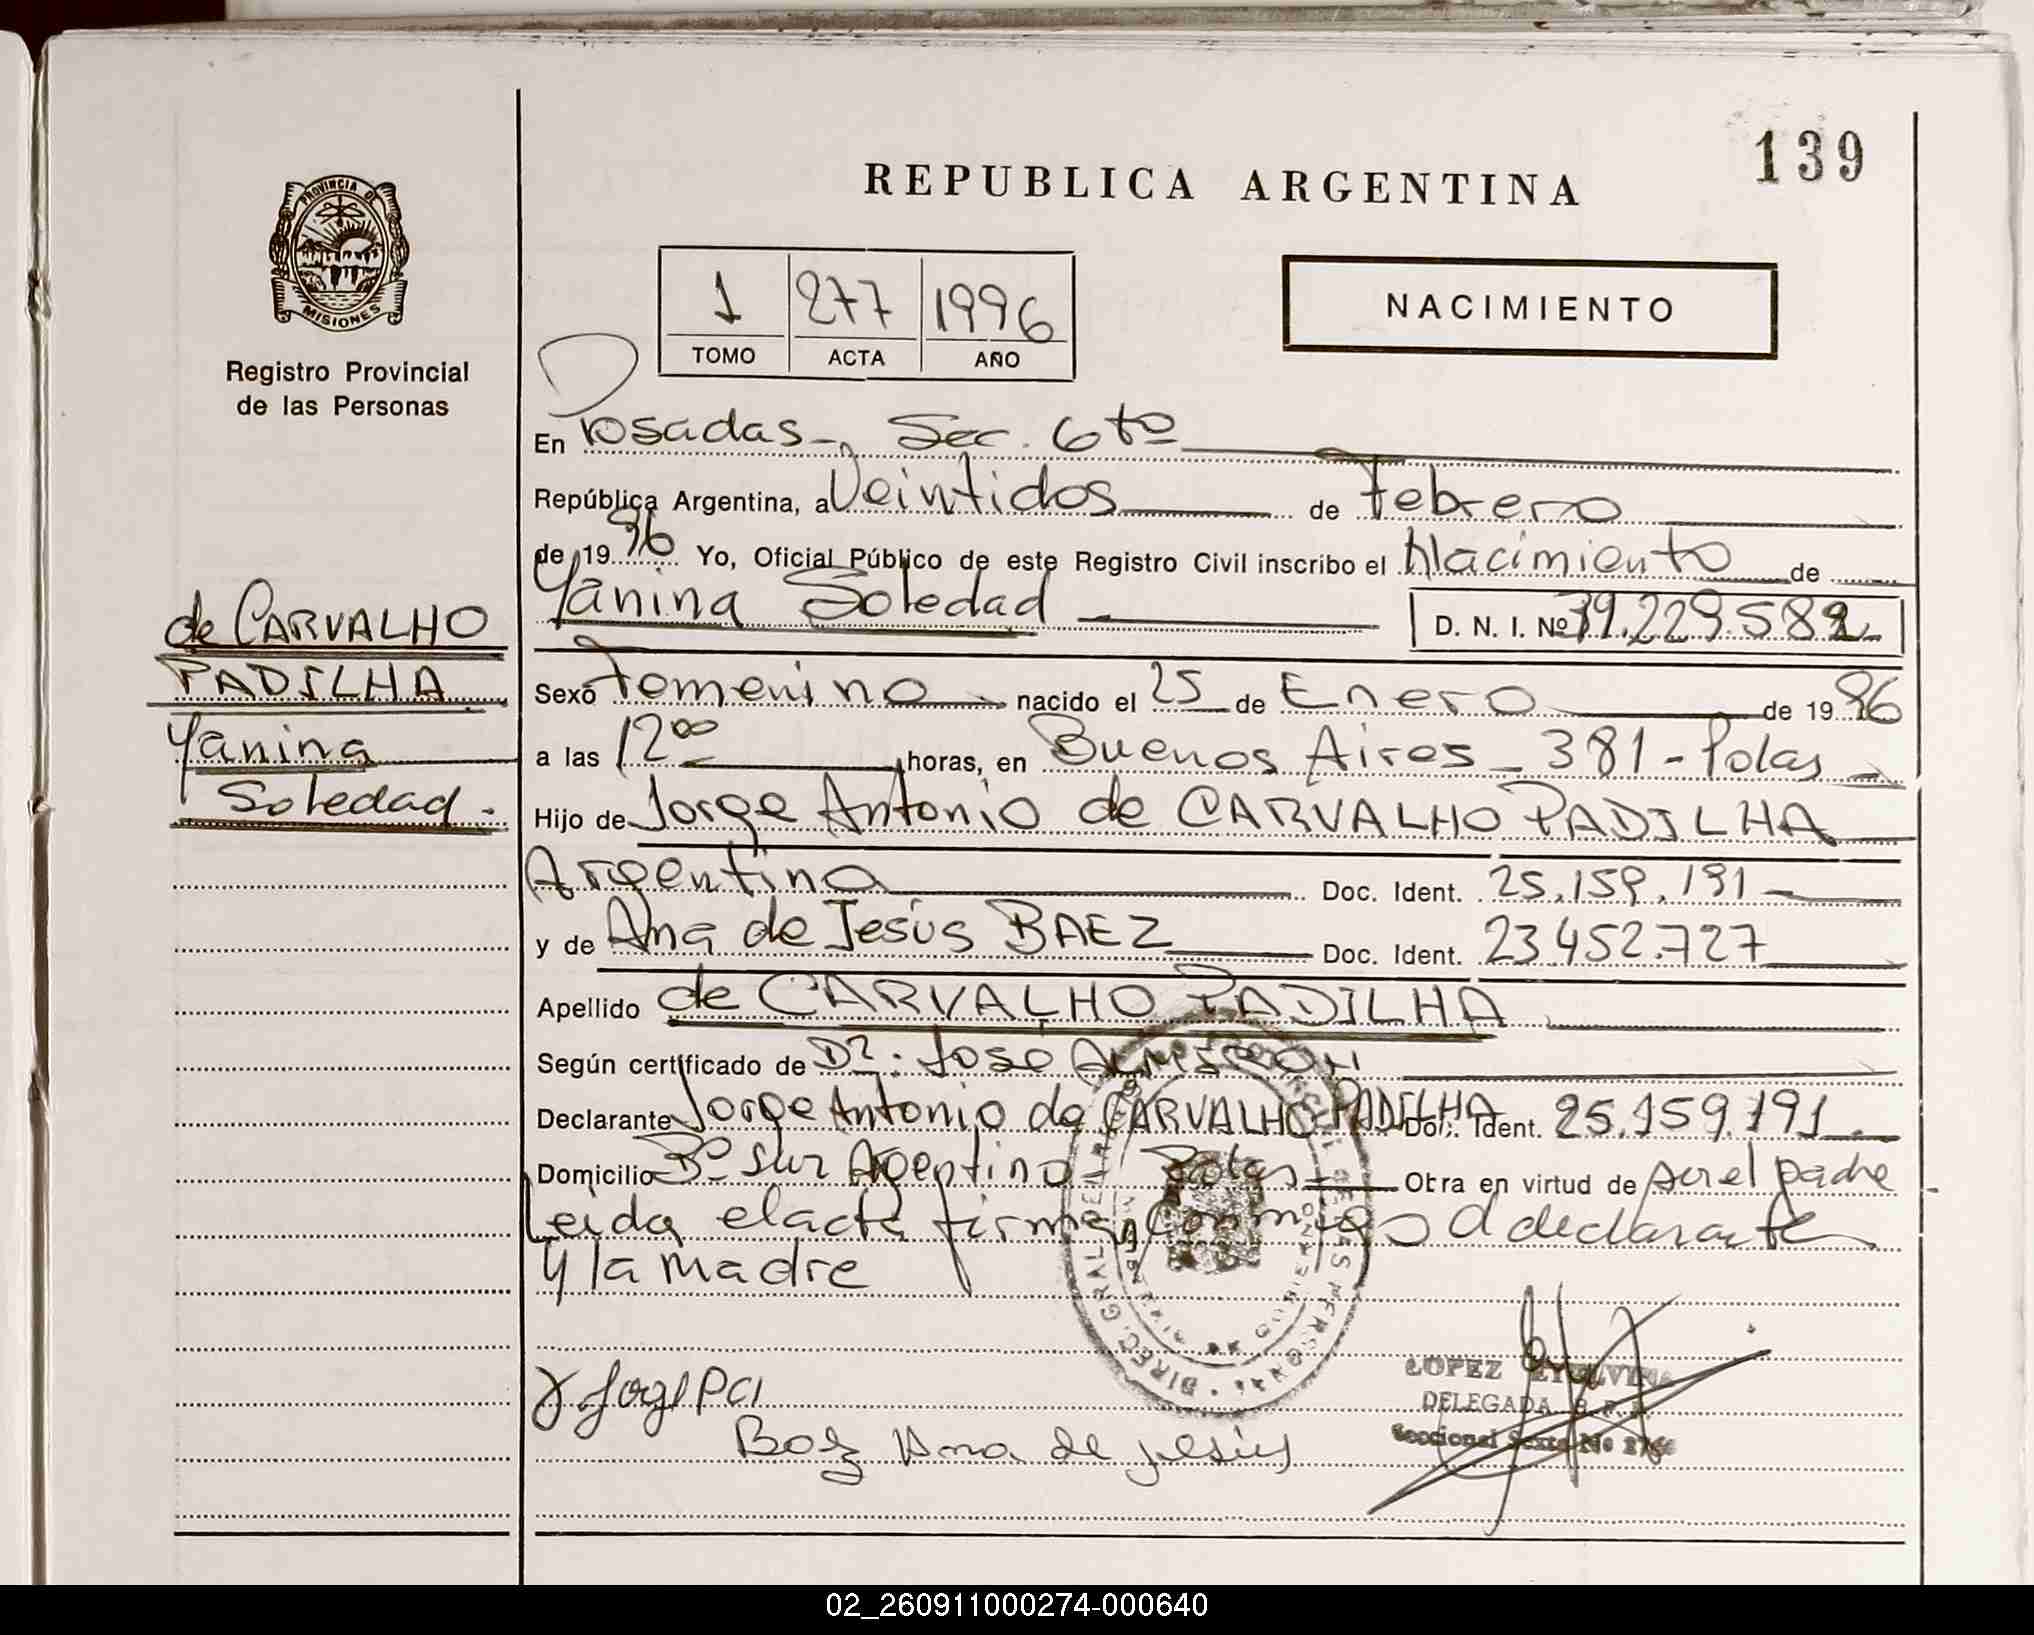 139
REPUBLICA ARGENTINA
PROVINCIA D
MISIONES
Registro Provincial
de las Personas
1 277 1996
TOMO ACTA AÑO
NACIMIENTO
En Posadas-, Sec. 6to
República Argentina, a Veintidos de Febrero
de 1996 Yo, Oficial Público de este Registro Civil inscribo el Nacimiento de
Yanina Soledad D. N. I. Nº 39.229.582
de CARVALHO
PADILHA
Yanina
Soledad.
Sexo Femenino nacido el 25 de Enero de 1996
a las 12 00 horas, en Buenos Aires - 381 - Pdas
Hijo de Jorge Antonio de CARVALHO PADILHA
Argentino Doc. Ident. 25.159.191
y de Ana de Jesús BAEZ Doc. Ident. 23.452.727
Apellido de CARVALHO PADILHA
Según certificado de Dr. José ALMIRON
Declarante Jorge Antonio de CARVALHO PADILHA Doc. Ident. 25.159.191
Domicilio Bº Sur Agentino Pdas Obra en virtud de ser el padre
Leida el acta firman conmigo el declarante
y la madre
Baez Ana de Jesús
LOPEZ
DELEGADA
Seccional Sexta No
02_260911000274-000640